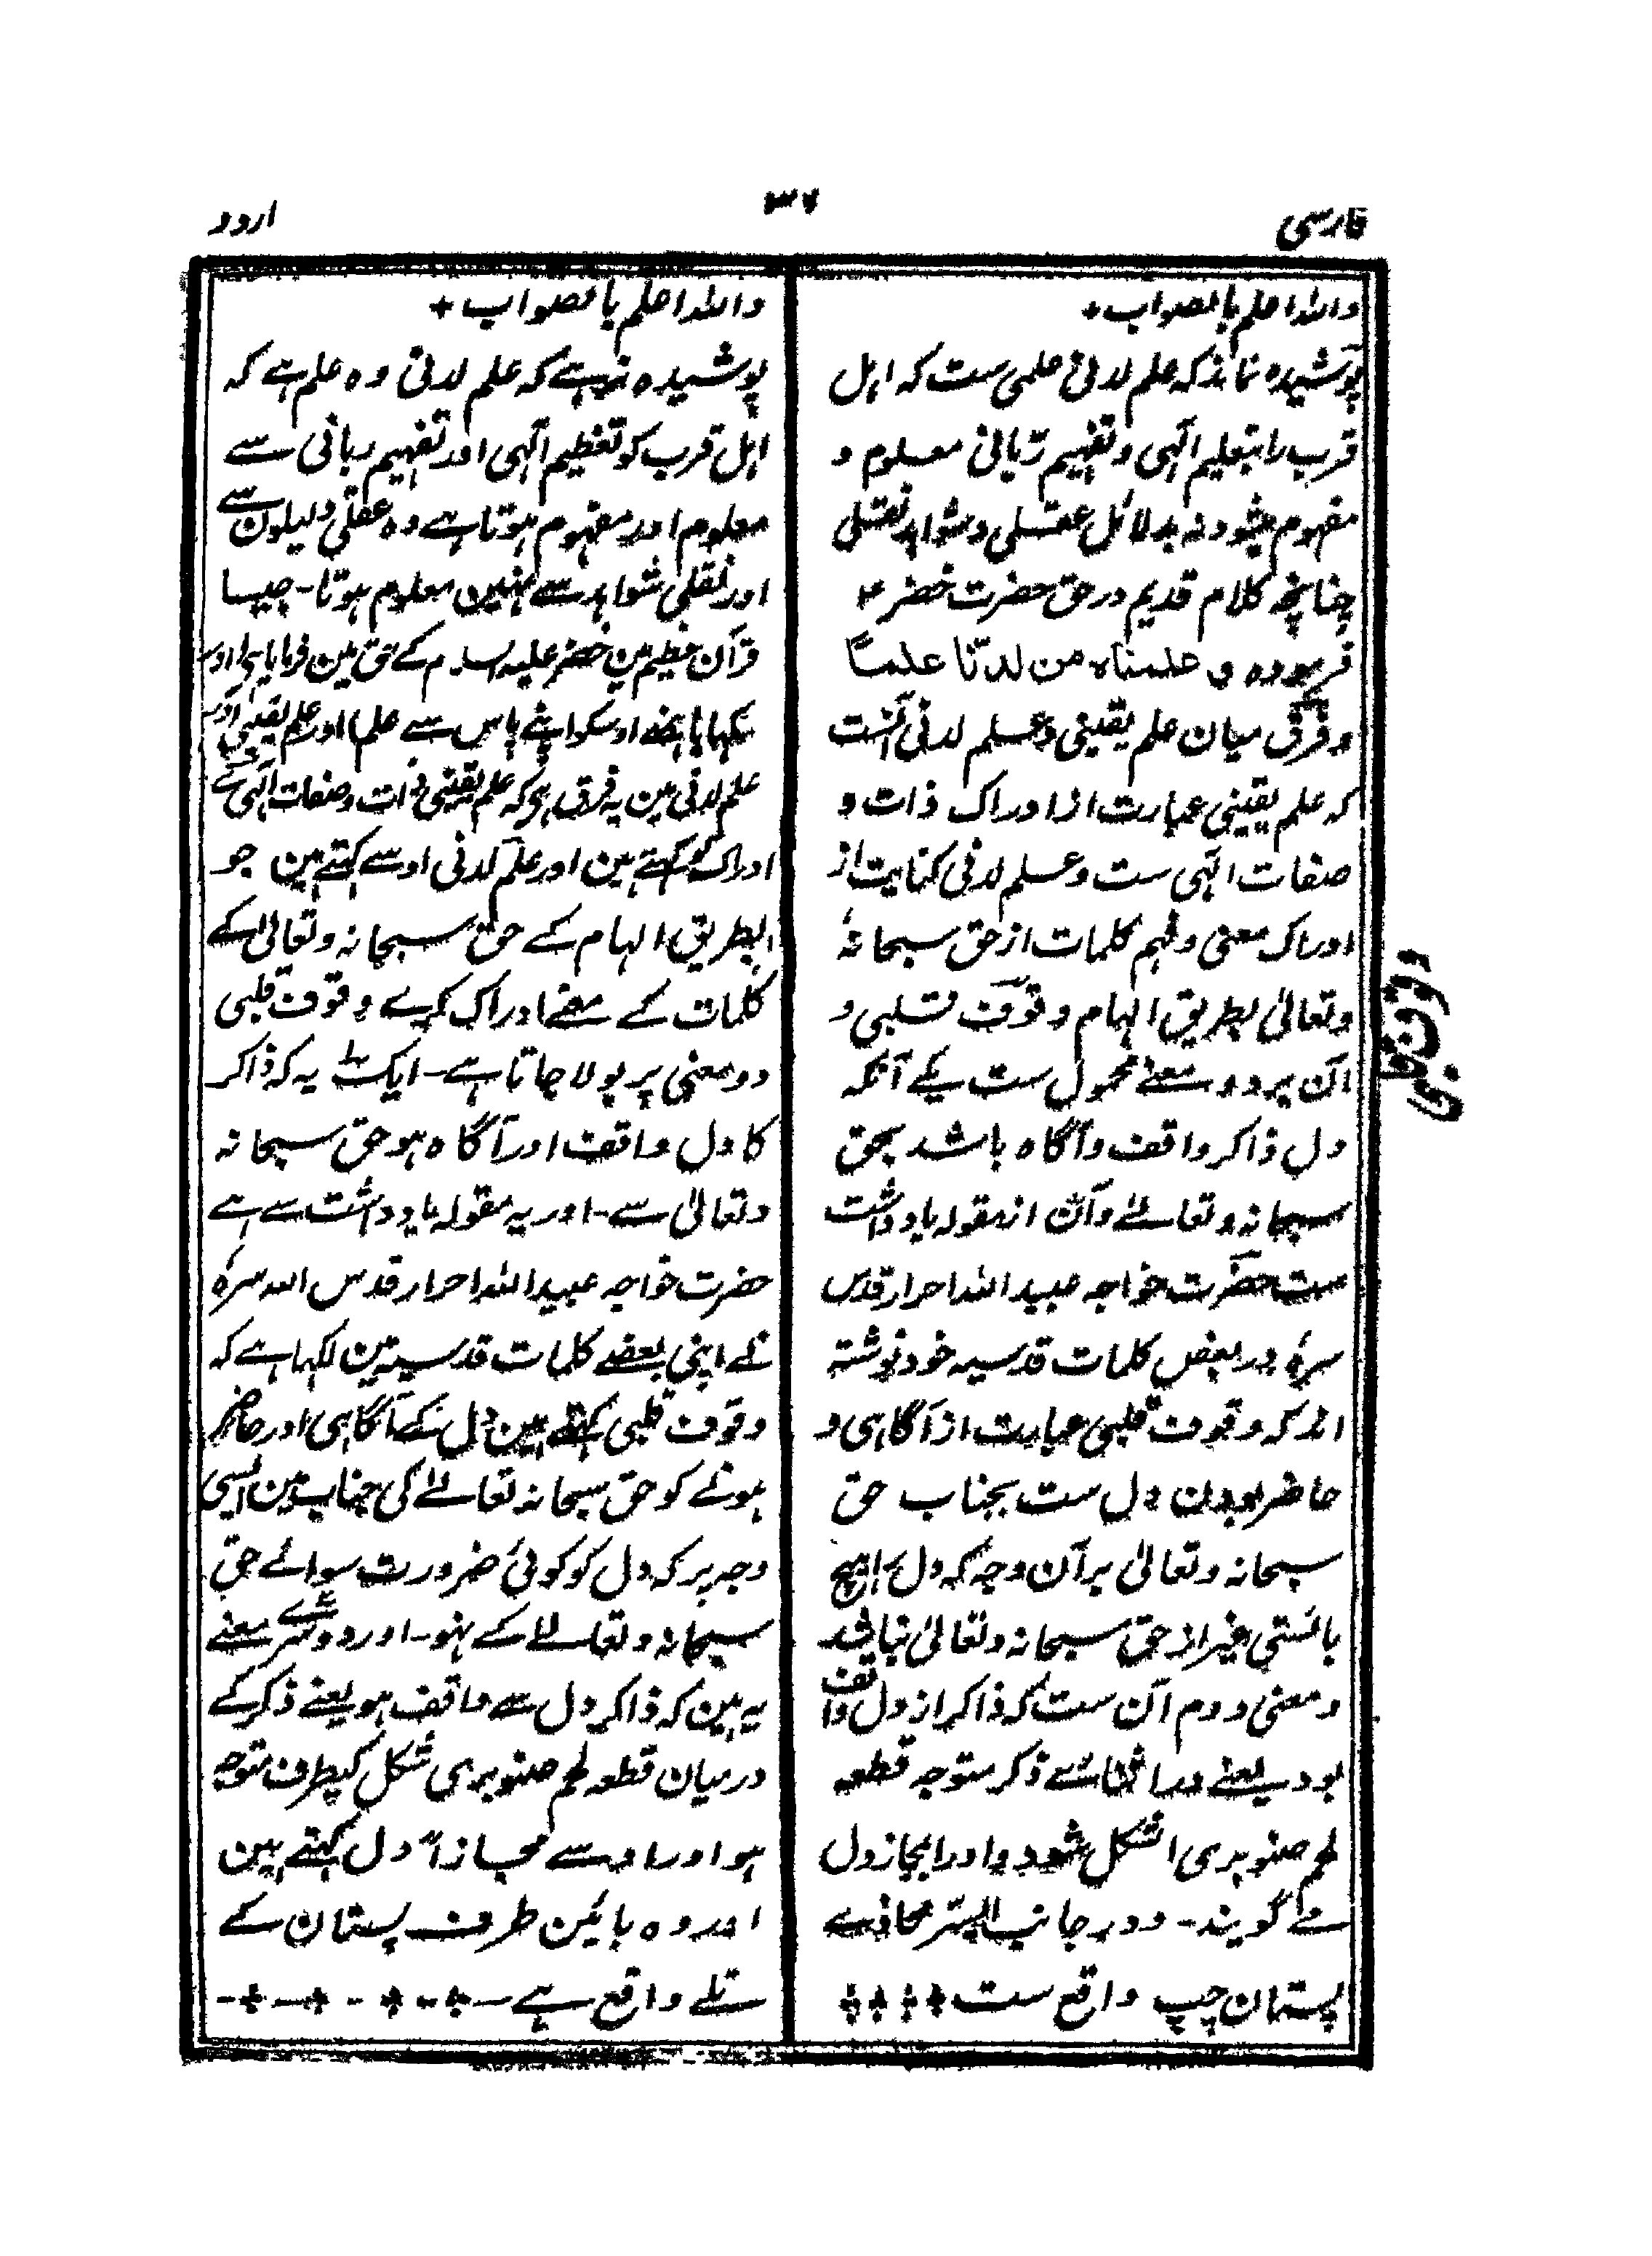 فارسی
۳۷
اردو
واللہ اعلم بالصواب +
پوشیدہ نماند کہ علم لدنی علمی ست کہ اہل
قرب را بتعلیم الٰہی و تفہیم ربّانی معلوم و
مفہوم میشود نہ بدلائل عقلی و شواہد نقلی
چنانچہ کلام قدیم در حق حضرت خضرؑ
فرمودہ و علمناہ من لدنّا علماً
و فرق میان علم یقینی و علم لدنی آنست
کہ علم یقینی عبارت از ادراک ذات و
صفات الٰہی ست و علم لدنی کنایت از
ادراک معنی و فہم کلمات از حق سبحانہٗ
وتعالیٰ بطریق الہام وقوف قلبی و
آن بر دو معنے محمول ست یکے آنکہ
دل ذاکر واقف و آگاہ باشد بحق
سبحانہ و تعالےٰ و آن از مقولہ یادداشت
ست حضرت خواجہ عبید اللہ احرار قدس
سرہٗ در بعض کلمات قدسیہ خود نوشتہ
اند کہ وقوف قلبی عبارت از آگاہی و
حاضر بودن دل ست بجناب حق
سبحانہ وتعالیٰ بر آن وجہ کہ دل را ہیچ
بائستی غیر از حق سبحانہ وتعالیٰ نباشد
و معنی دوم آن ست کہ ذاکر از دل واقف
بود یعنے در اثنائے ذکر متوجہ قطعہ
لحم صنوبری الشکل شود و او را مجاز دل
مے گویند - و در جانب ایسر محاذے
پستان چپ واقع ست ++++
وقوف قلبی
واللہ اعلم بالصواب +
پوشیدہ نرہے کہ علم لدنی وہ علم ہے کہ
اہل قرب کو تعظیم الٰہی اور تفہیم ربانی سے
معلوم اور مفہوم ہوتا ہے وہ عقلی دلیلون سے
اور نقلی شواہد سے نہین معلوم ہوتا - جیسا
قرآن عظیم مین خضر علیہ السلام کے حق مین فرمایا ہی (اور
سکہایا ہمنے اوسکو اپنے پاس سے علم) اور علم یقینی اور
علم لدنی مین یہ فرق ہی کہ علم یقینی ذات و صفات الٰہی کے
ادراک کو کہتے ہین اور علم لدنی اوسے کہتے ہین جو
بطریق الہام کے حق سبحانہ وتعالیٰ کے
کلمات کے معنے ادراک کرے وقوف قلبی
دو معنی پر بولا جاتا ہے - ایک یہ کہ ذاکر
کا دل واقف اور آگاہ ہو حق سبحانہ
وتعالیٰ سے - اور یہ مقولہ یادداشت سے ہے
حضرت خواجہ عبید اللہ احرار قدس اللہ سرہٗ
نے اپنی بعضے کلمات قدسیہ مین لکہا ہے کہ
وقوف قلبی کہتے ہین دل کے آگاہی اور حاضر
ہونے کو حق سبحانہ تعالےٰ کی جناب مین ایسی
وجہ پر کہ دل کو کوئی ضرورت سوائے حق
سبحانہ وتعالےٰ کے نہو - اور دوسرے معنے
یہ ہین کہ ذاکر دل سے واقف ہو یعنے ذکر کے
درمیان قطعہ لحم صنوبری شکل کیطرف متوجہ
ہو اور اوسے مجازاً دل کہتے ہین
اور وہ بائین طرف پستان کے
تلے واقع ہے -+-+-+-+-